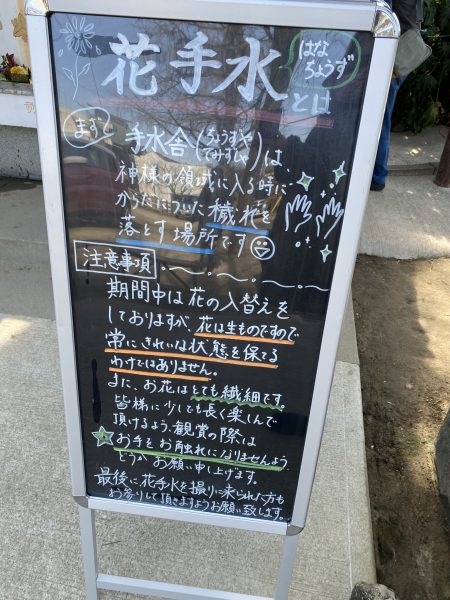 花手水とは
はな
ちょうず
まずは
手水舎(ちょうずや てみずや)は、
神様の領域に入る時に
からだについた穢れを
落とす場所です
注意事項
期間中は花の入替えを
しておりますが、花は生ものですので
常にきれいな状態を保てる
わけではありません。
また、お花はとても繊細です。
皆様に少しでも長く楽しんで
頂けるよう、観賞の際は
お手をお触れになりませんよう
どうか お願い申し上げます。
最後に花手水を撮りに来られた方も
お参りして頂きますようお願い致します。